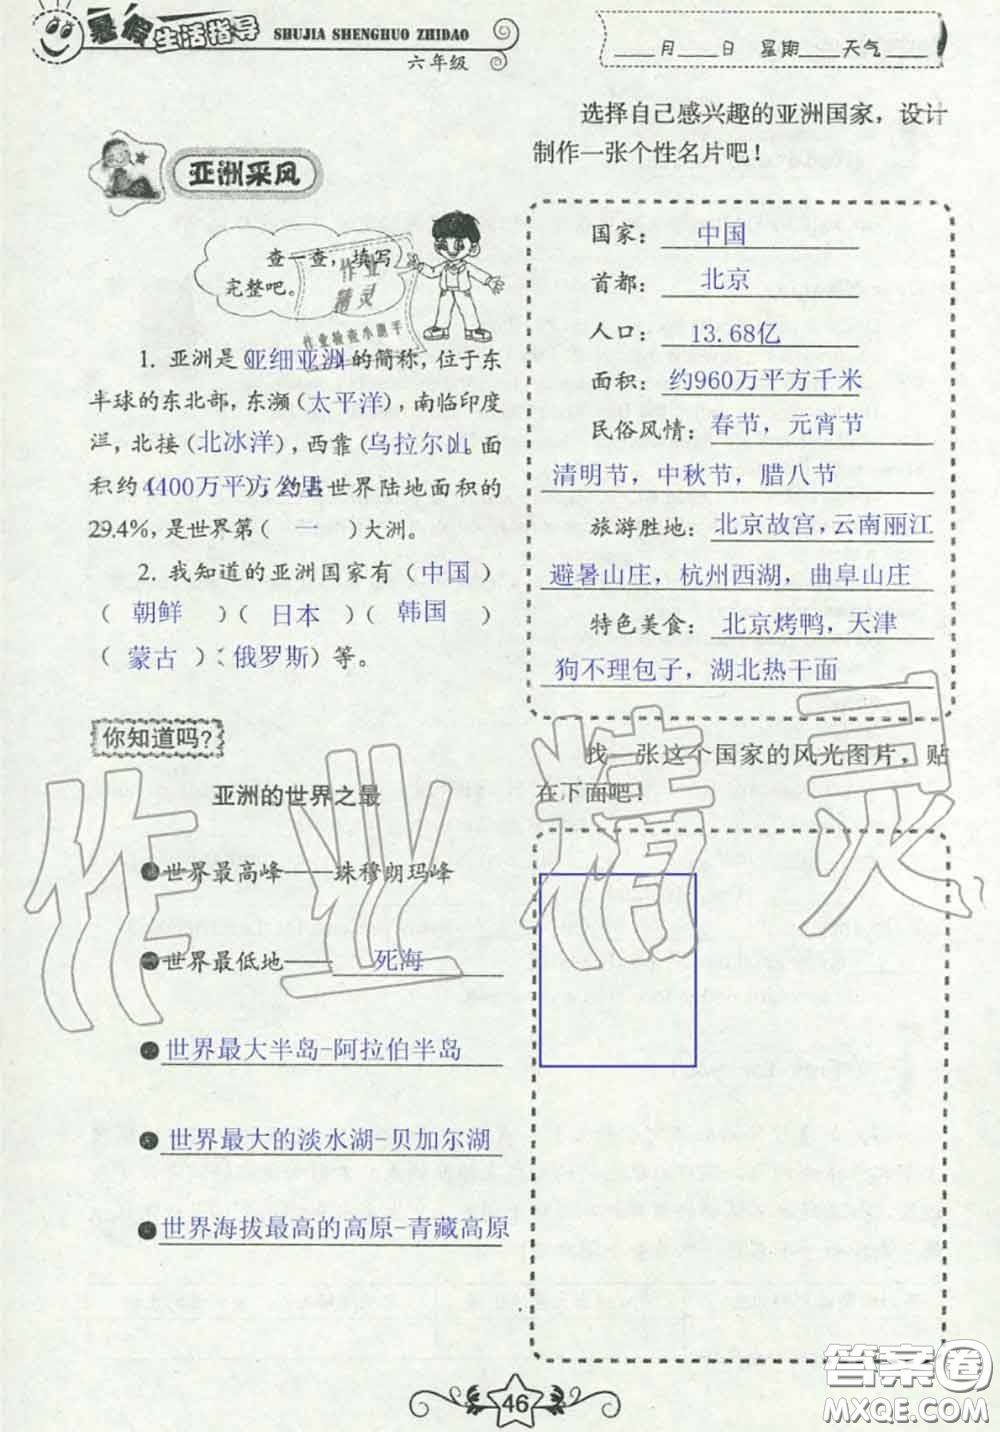 暑假生活指导 SHUJIA SHENGHUO ZHIDAO
六年级
____月____日 星期____天气____
亚洲采风
查一查，填写
完整吧。
作业
精灵
作业检查小帮手
1. 亚洲是(亚细亚洲)的简称，位于东
半球的东北部，东濒(太平洋)，南临印度
洋，北接(北冰洋)，西靠(乌拉尔山)。面
积约(4400万平方公里)，约占世界陆地面积的
29.4%，是世界第( 一 )大洲。
2. 我知道的亚洲国家有(中国)
( 朝鲜 )( 日本 )( 韩国 )
( 蒙古 )、(俄罗斯)等。
你知道吗?
亚洲的世界之最
●世界最高峰——珠穆朗玛峰
●世界最低地——死海
●世界最大半岛-阿拉伯半岛
●世界最大的淡水湖-贝加尔湖
●世界海拔最高的高原-青藏高原
选择自己感兴趣的亚洲国家，设计
制作一张个性名片吧！
国家：中国
首都：北京
人口：13.68亿
面积：约960万平方千米
民俗风情：春节，元宵节
清明节，中秋节，腊八节
旅游胜地：北京故宫，云南丽江
避暑山庄，杭州西湖，曲阜山庄
特色美食：北京烤鸭，天津
狗不理包子，湖北热干面
找一张这个国家的风光图片，贴
在下面吧！
作业精灵
46
答案卷
MXQE.COM